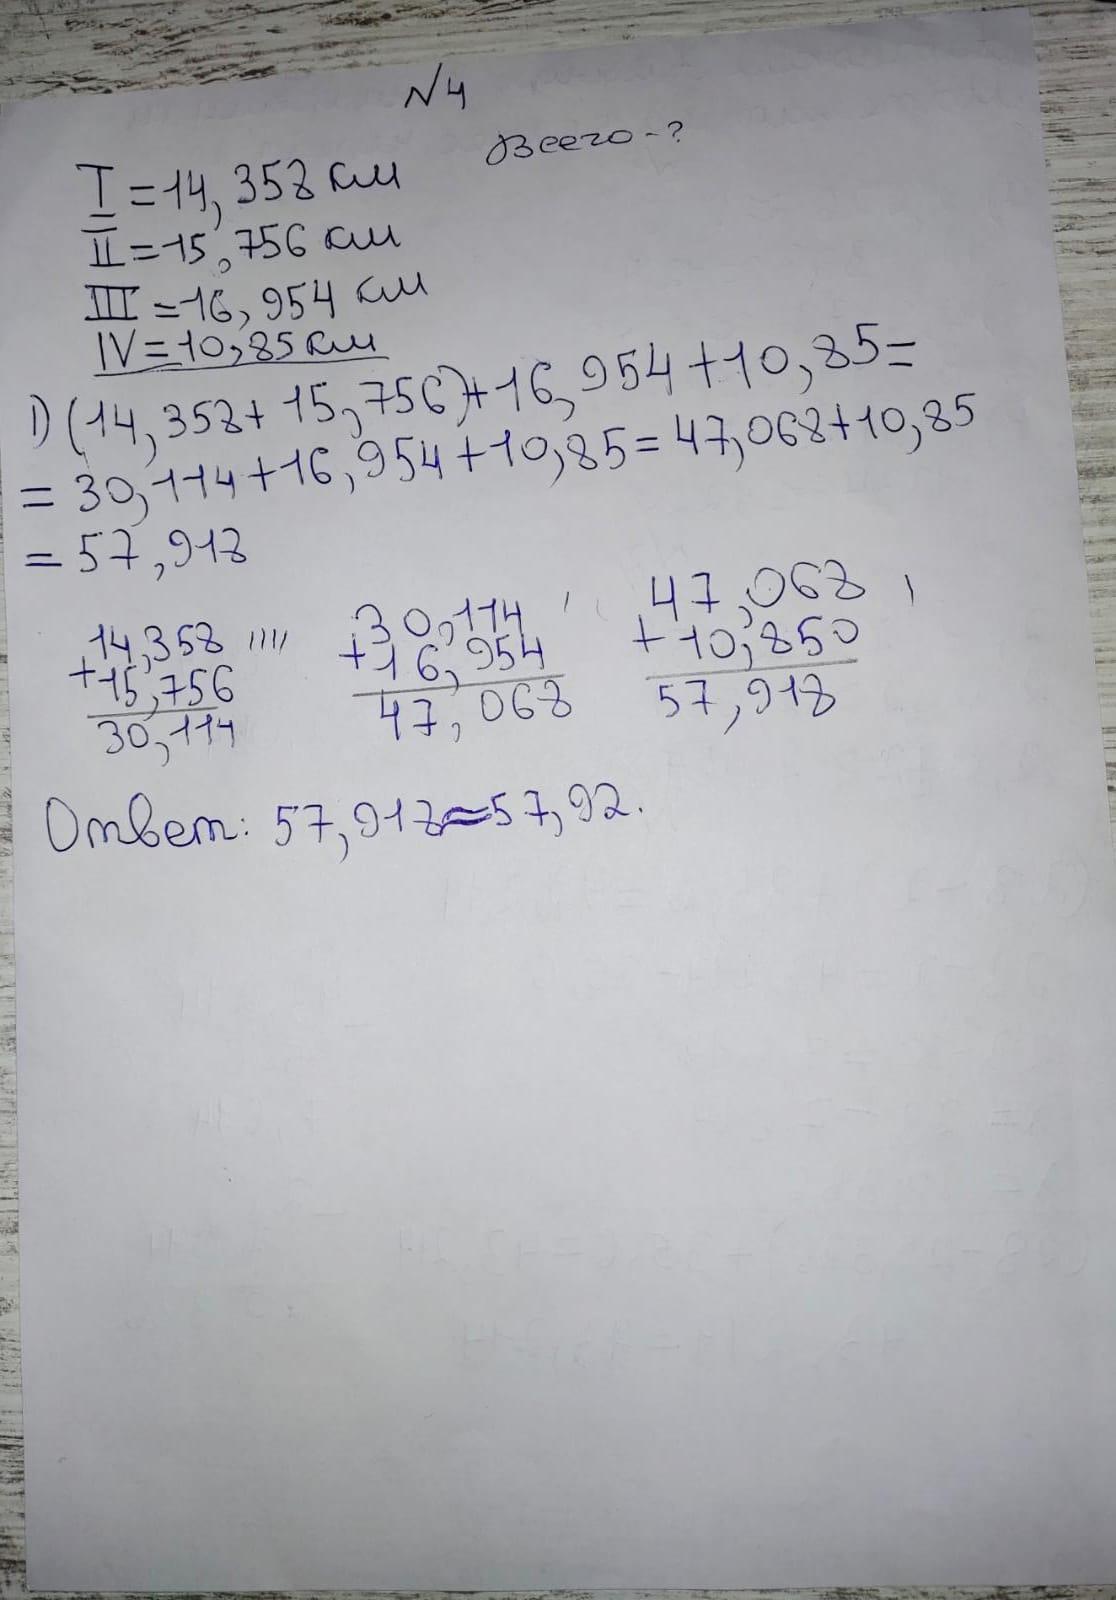 N4
Всего-?
I=14,358 км
II=15,756 км
III=16,954 км
IV=10,85 км
1) (14,358+15,756)+16,954+10,85=
=30,114+16,954+10,85=47,068+10,85
=57,918
14,358
+15,756
30,114
30,114
+16,954
47,068
47,068
+10,850
57,918
Ответ: 57,918≈57,92.